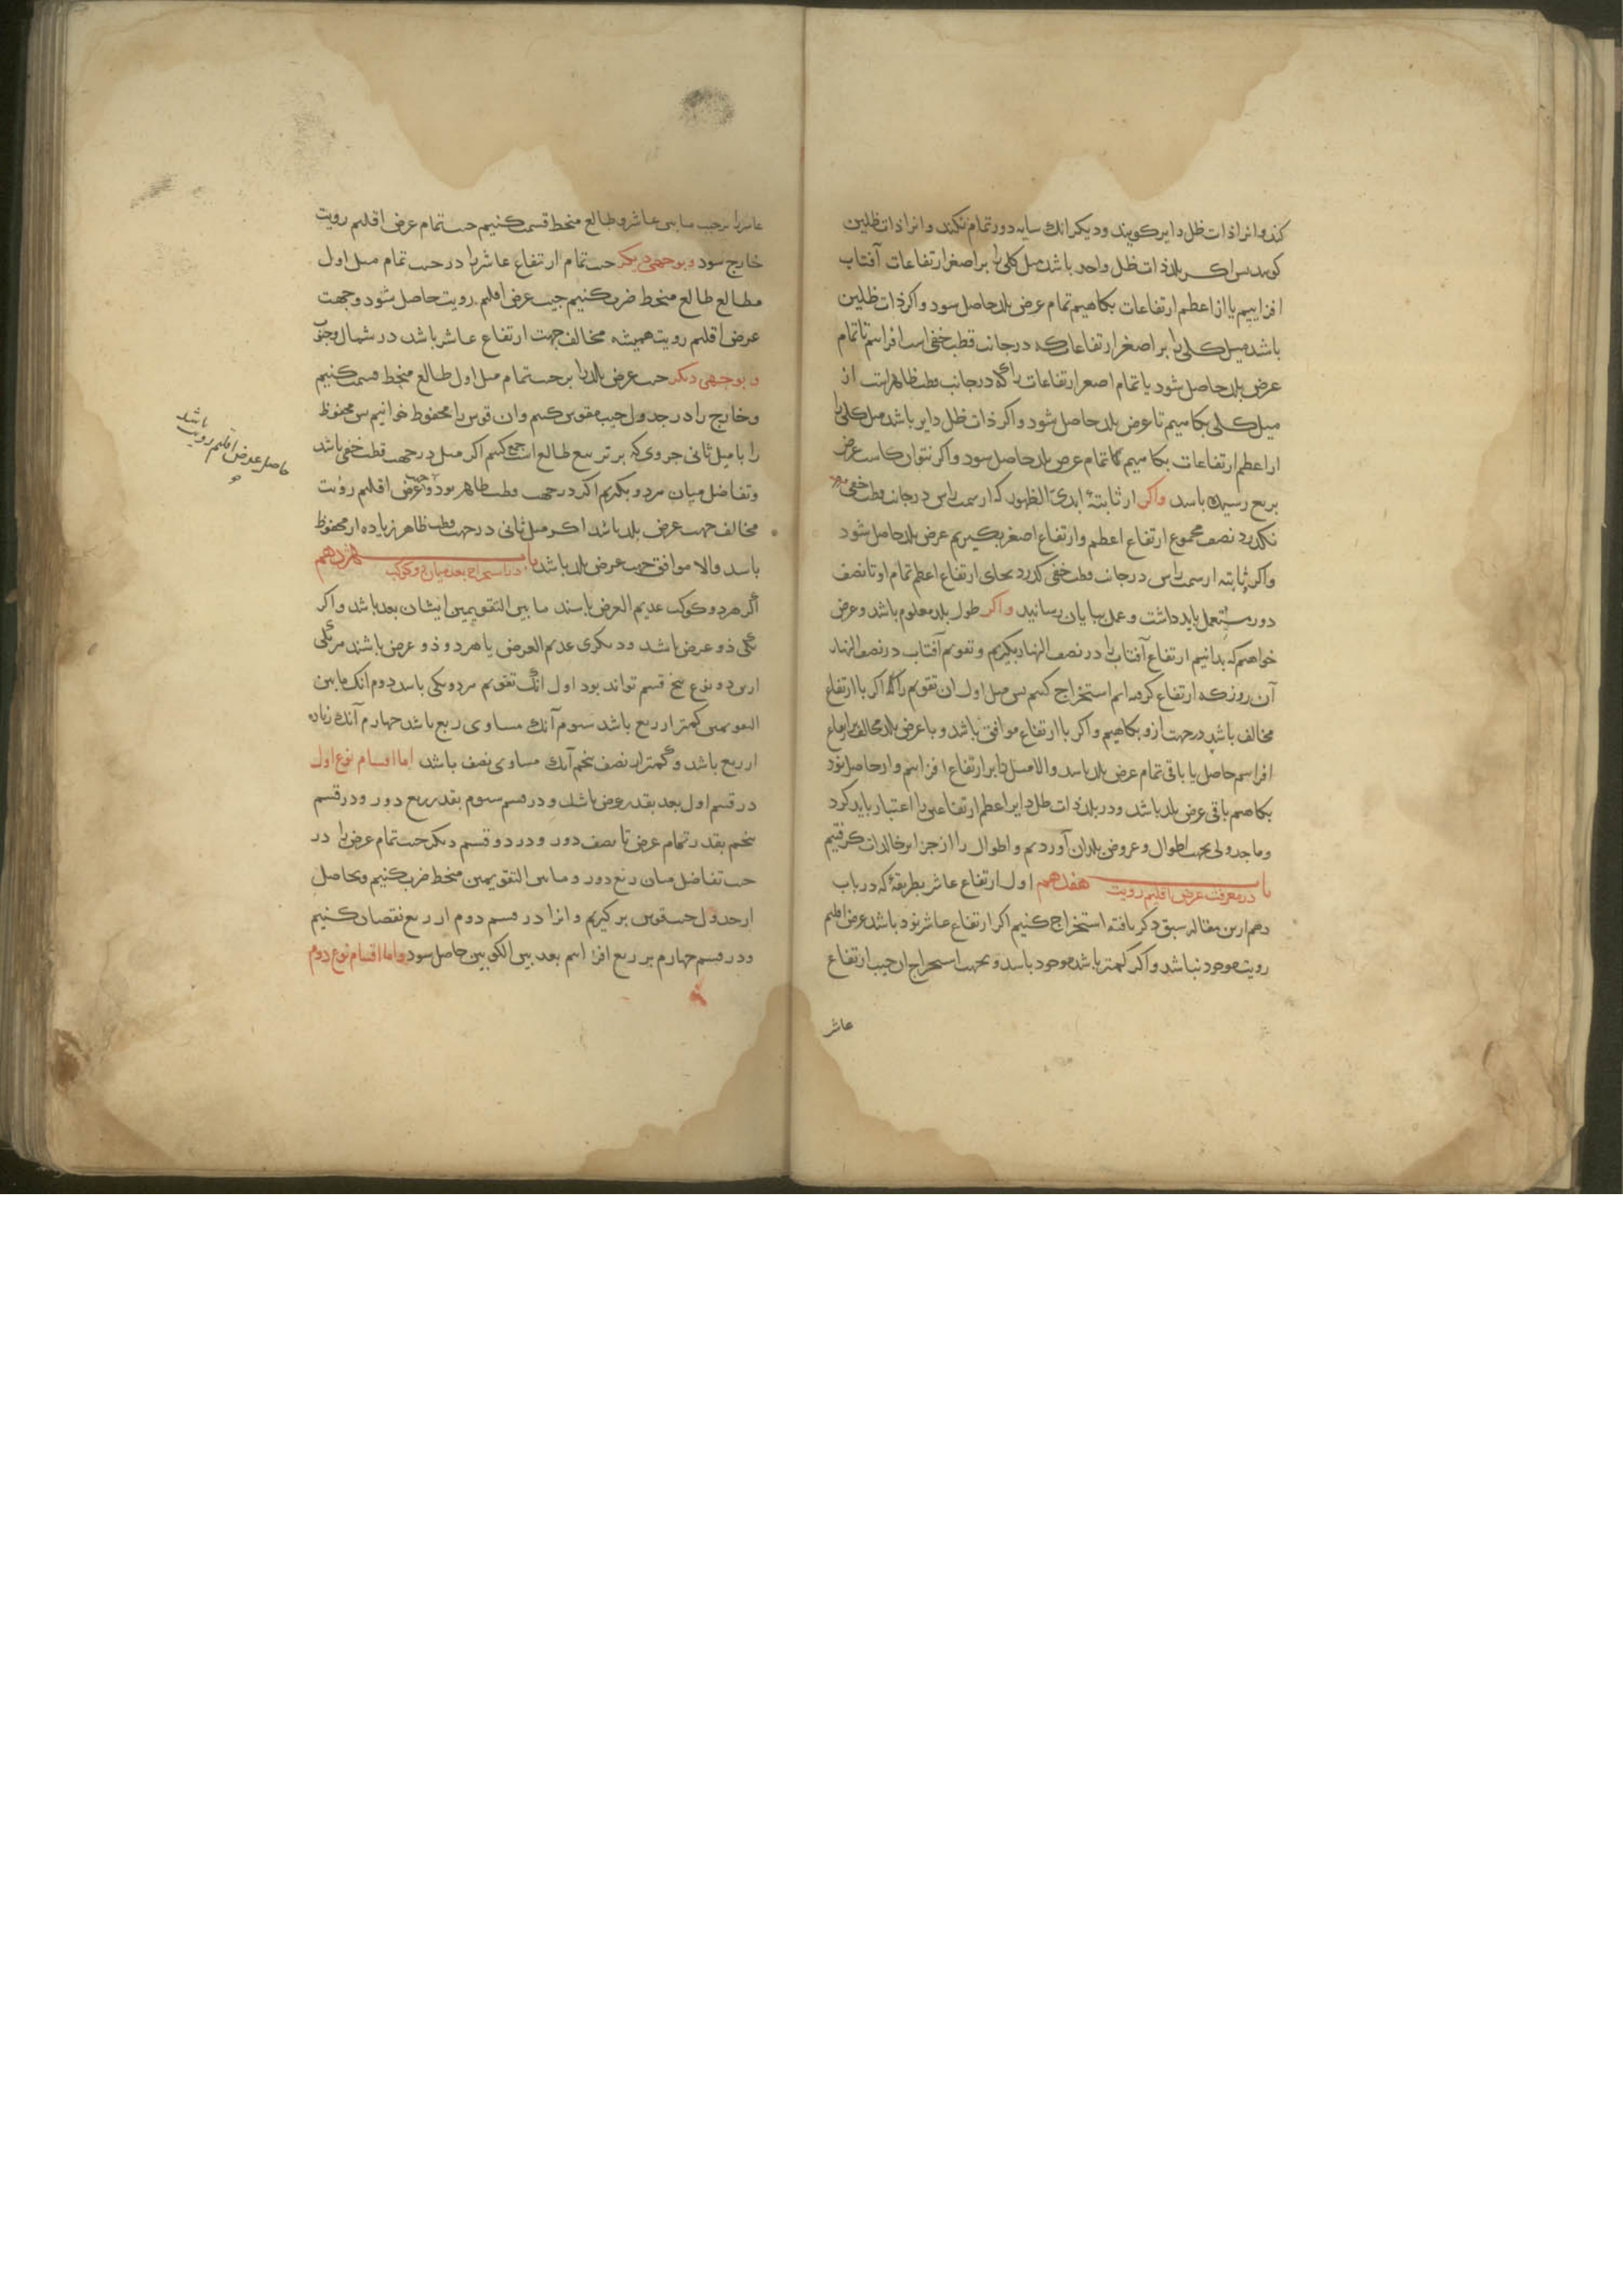 کند و انرا ذات ظل دایر کویند و دیکر انك سایه دور تمام نکند و انرا ذات ظلین
کویند بس اکر بلد ذات ظل واحد باشد میل کلی را بر اصغر ارتفاعات آفتاب
افزاییم یا از اعظم ارتفاعات بکاهیم تمام عرض بلد حاصل سود و اکر ذات ظلین
باشد میل کلی را بر اصغر ارتفاعات که در جانب قطب خفی است افزاییم تا تمام
عرض بلد حاصل شود یا تمام اصغر ارتفاعات را که در جانب قطب ظاهر است از
میل کلی بکاهیم تا عرض بلد حاصل شود و اکر ذات ظل دایر باشد میل کلی را
از اعظم ارتفاعات بکاهیم تا تمام عرض بلد حاصل سود و اکر نتوان کاست عرض
بربع رسیده باسد واکر از ثابتهٔ ابدی الظهور که از سمت راس در جانب قطب خفی
نکذرد نصف مجموع ارتفاع اعظم و ارتفاع اصغر بکیریم عرض بلد حاصل شود
واکر ثابته از سمت راس در جانب قطب خفی کذرد بجای ارتفاع اعظم تمام او تا نصف
دور مستعمل باید داشت و عمل بپایان رسانید واکر طول بلد معلوم باشد و عرض
خواهیم که بدانیم ارتفاع آفتاب را در نصف النهار بکیریم و تقویم آفتاب در نصف النهار
آن روز که ارتفاع کرفته ایم استخراج کنیم بس میل اول ان تقویم را اکر با ارتفاع
مخالف باشد در جهت ازو بکاهیم و اکر با ارتفاع موافق باشد و با عرض بلد مخالف بر ارتفاع
افزاییم حاصل یا باقی تمام عرض بلد باسد و الا میل را بر ارتفاع افزاییم و از حاصل نود
بکاهیم باقی عرض بلد باشد و در بلد ذات ظل دایر اعظم ارتفاعین را اعتبار باید کرد
و ما جدولی بجهت اطوال و عروض بلدان آوردیم و اطوال را از جزایر خالدات کرفتیم
باب هفدهم در معرفت عرض اقلیم رویت اول ارتفاع عاشر بطریقهٔ که در باب
دهم ازین مقاله سبق ذکر یافته استخراج کنیم اکر ارتفاع عاشر نود باشد عرض اقلیم
رویت موجود نباشد و اکر کمتر باشد موجود باسد و بجهت استخراج ان جیب ارتفاع
عاشر
عاشر را بر جیب مابین عاشر و طالع منحط قسمت کنیم جیب تمام عرض اقلیم رویت
خارج سود و بوجهی دیکر جیب تمام ارتفاع عاشر را در جیب تمام میل اول
مطالع طالع منحط ضرب کنیم جیب عرض اقلیم رویت حاصل شود و جهت
عرض اقلیم رویت همیشه مخالف جهت ارتفاع عاشر باشد در شمال و جنوب
و بوجهی دیکر جیب عرض بلد را بر جیب تمام میل اول طالع منحط قسمت کنیم
و خارج را در جدول جیب مقوس کنیم و ان قوس را محفوظ خوانیم بس محفوظ
را با میل ثانی جزوی که بر تربیع طالع است جمع کنیم اکر میل در جهت قطب خفی باشد
و تفاضل میان هردو بکیریم اکر در جهت قطب ظاهر بود و جهت عرض اقلیم رویت
حاصل عرض اقلیم رویت باشد و
مخالف جهت عرض بلد باشد اکر میل ثانی در جهت قطب ظاهر زیاده از محفوظ
باسد والا موافق جهت عرض بلد باشد باب هژدهم در استخراج بعد میان دو کوکب
اکر هردو کوکب عدیم العرض باسند ما بین التقویمین ایشان بعد باشد و اکر
یکی ذو عرض باشد و دیکری عدیم العرض یا هردو ذو عرض باشند هر یکی
ازین دو نوع پنج قسم تواند بود اول انک تقویم هردو یکی باسد دوم انک ما بین
التقویمین کمتر از ربع باشد سوم آنك مساوی ربع باشد چهارم آنك زیاده
از ربع باشد و کمتر از نصف پنجم آنك مساوی نصف باشد اما اقسام نوع اول
در قسم اول بعد بقدر عرض باشد و در قسم سوم بقدر ربع دور و در قسم
پنجم بقدر تمام عرض تا نصف دور و در دو قسم دیکر جیب تمام عرض را در
جیب تفاضل میان ربع دور و مابین التقویمین منحط ضرب کنیم و بحاصل
از جدول جیب قوس بر کیریم و انرا در قسم دوم از ربع نقصان کنیم
و در قسم چهارم بر ربع افزاییم بعد بین الکوکبین حاصل سود و اما اقسام نوع دوم